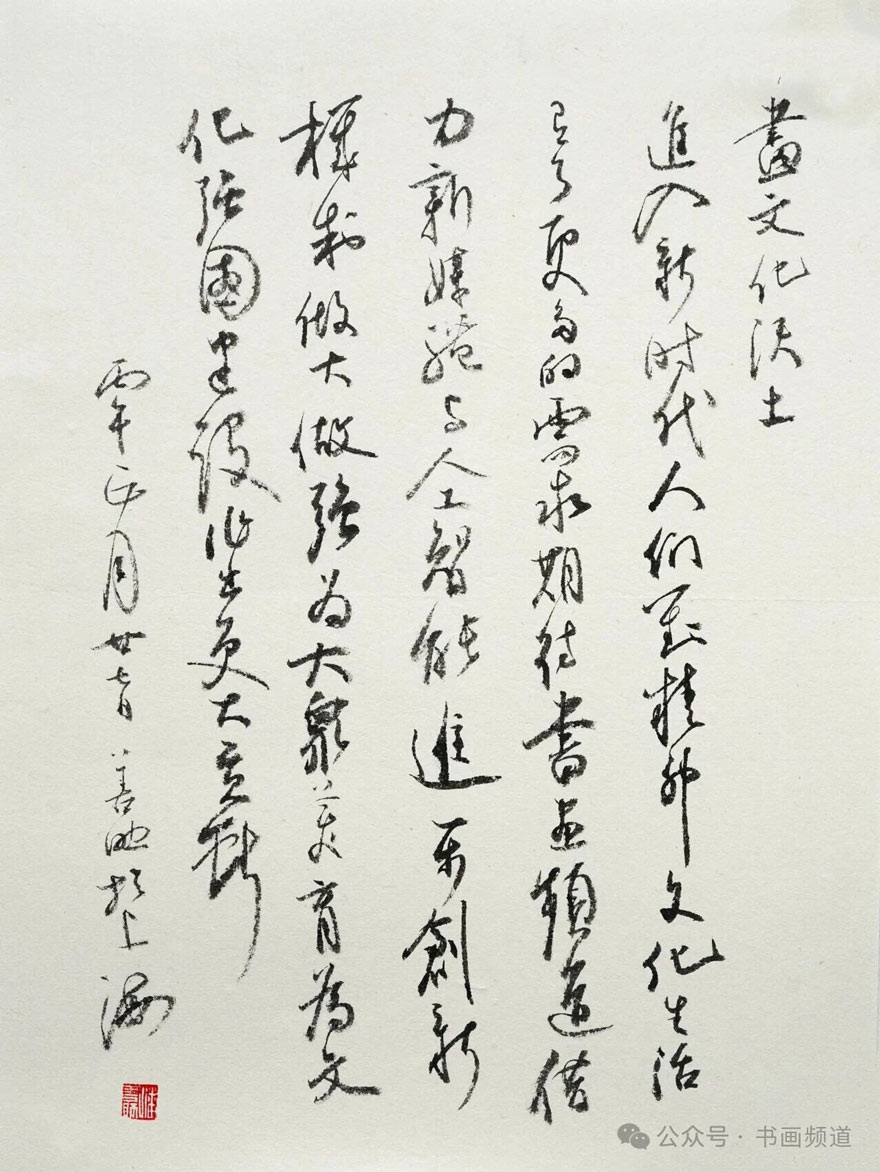 畫文化沃土
進入新时代人们对精神文化生活
有了更多的需求期待書画頻道借
力新媒體与人工智能進一步創新
機制做大做強为大衆美育為文
化强國建設作出更大贡献
丙午正月廿七日 善 於上海
公众号 · 书画频道